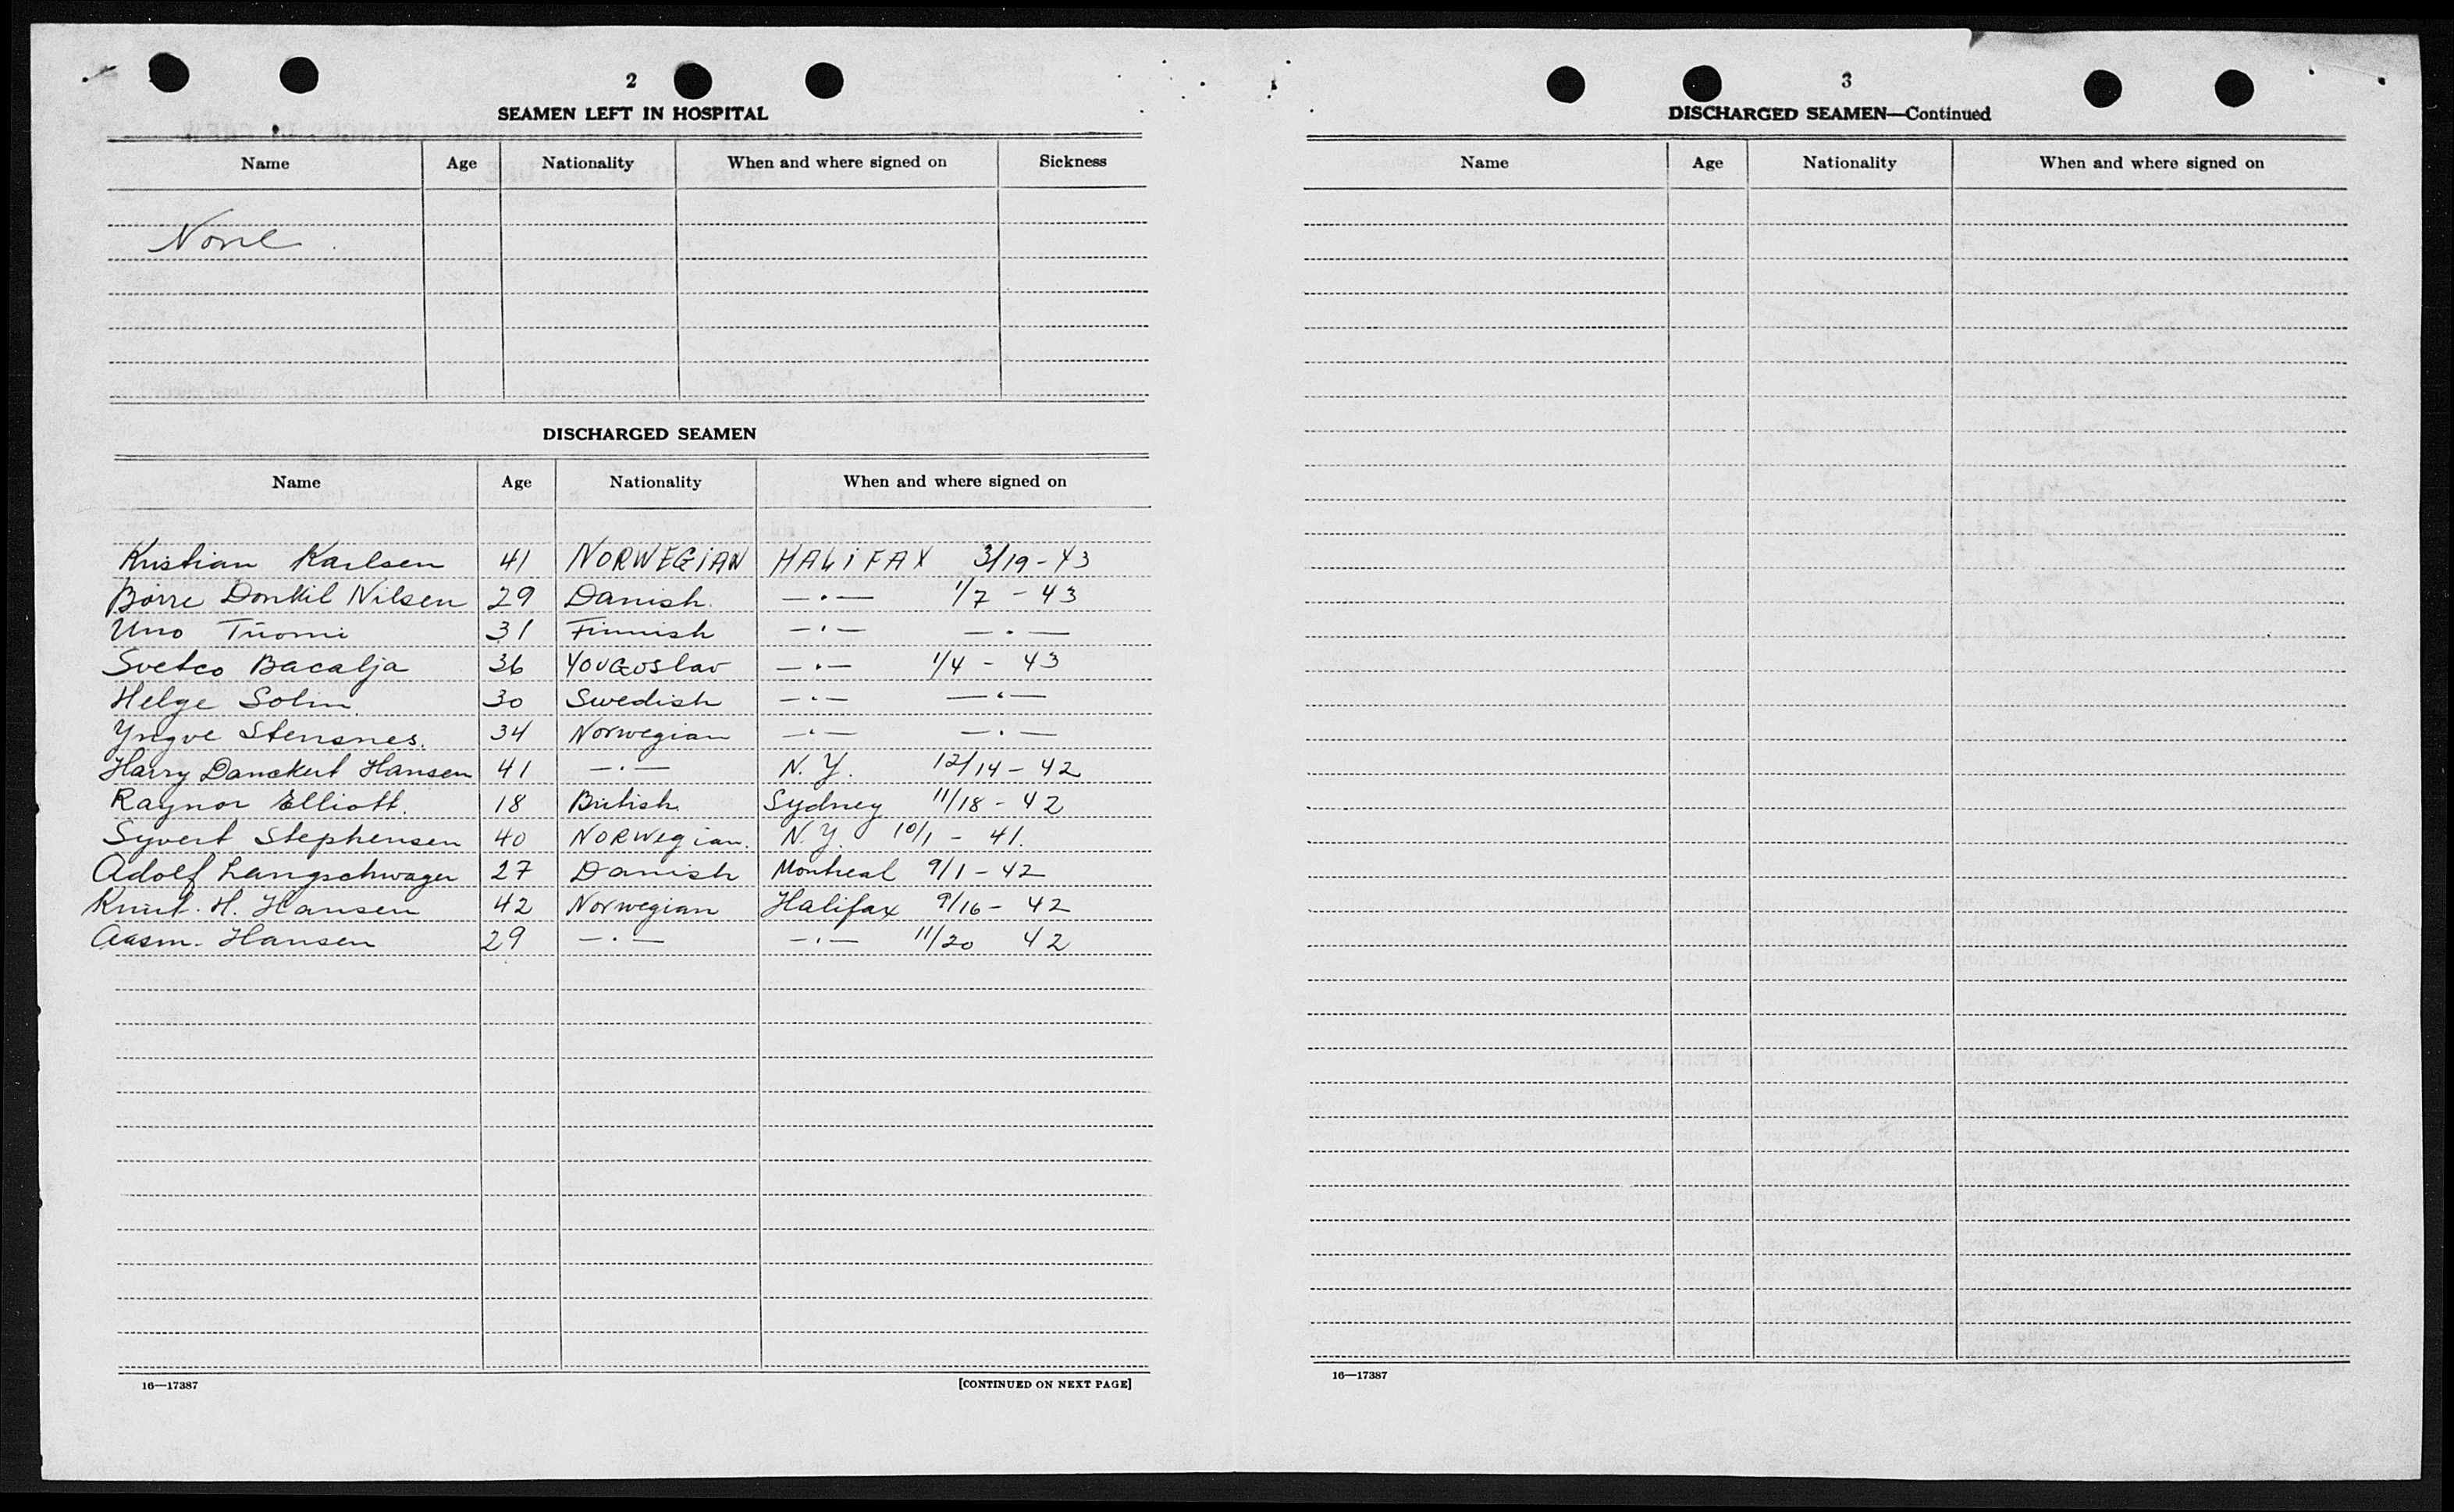 2
SEAMEN LEFT IN HOSPITAL
Name Age Nationality When and where signed on Sickness
None
DISCHARGED SEAMEN
Name Age Nationality When and where signed on
Kristian Karlsen 41 NORWEGIAN HALIFAX 3/19-43
Börre Donkil Nilsen 29 Danish. —·— 1/7 - 43
Uno Tuomi 31 Finnish —·— —·—
Svetco Bacalja 36 YOUGOSlav —·— 1/4 - 43
Helge Solin. 30 Swedish —·— —·—
Yngve Stensnes. 34 Norwegian —·— —·—
Harry Danckert Hansen 41 —·— N.Y. 12/14 - 42
Raynor Elliott. 18 British. Sydney 11/18 - 42
Syvert Stephensen 40 NORWegian. N.Y. 10/1 - 41.
Adolf Langschwager 27 Danish Montreal 9/1 - 42
Knut. H. Hansen 42 Norwegian Halifax 9/16 - 42
Aasm. Hansen 29 —·— —·— 11/20 42
16—17387 [CONTINUED ON NEXT PAGE]
3
DISCHARGED SEAMEN—Continued
Name Age Nationality When and where signed on
16—17387